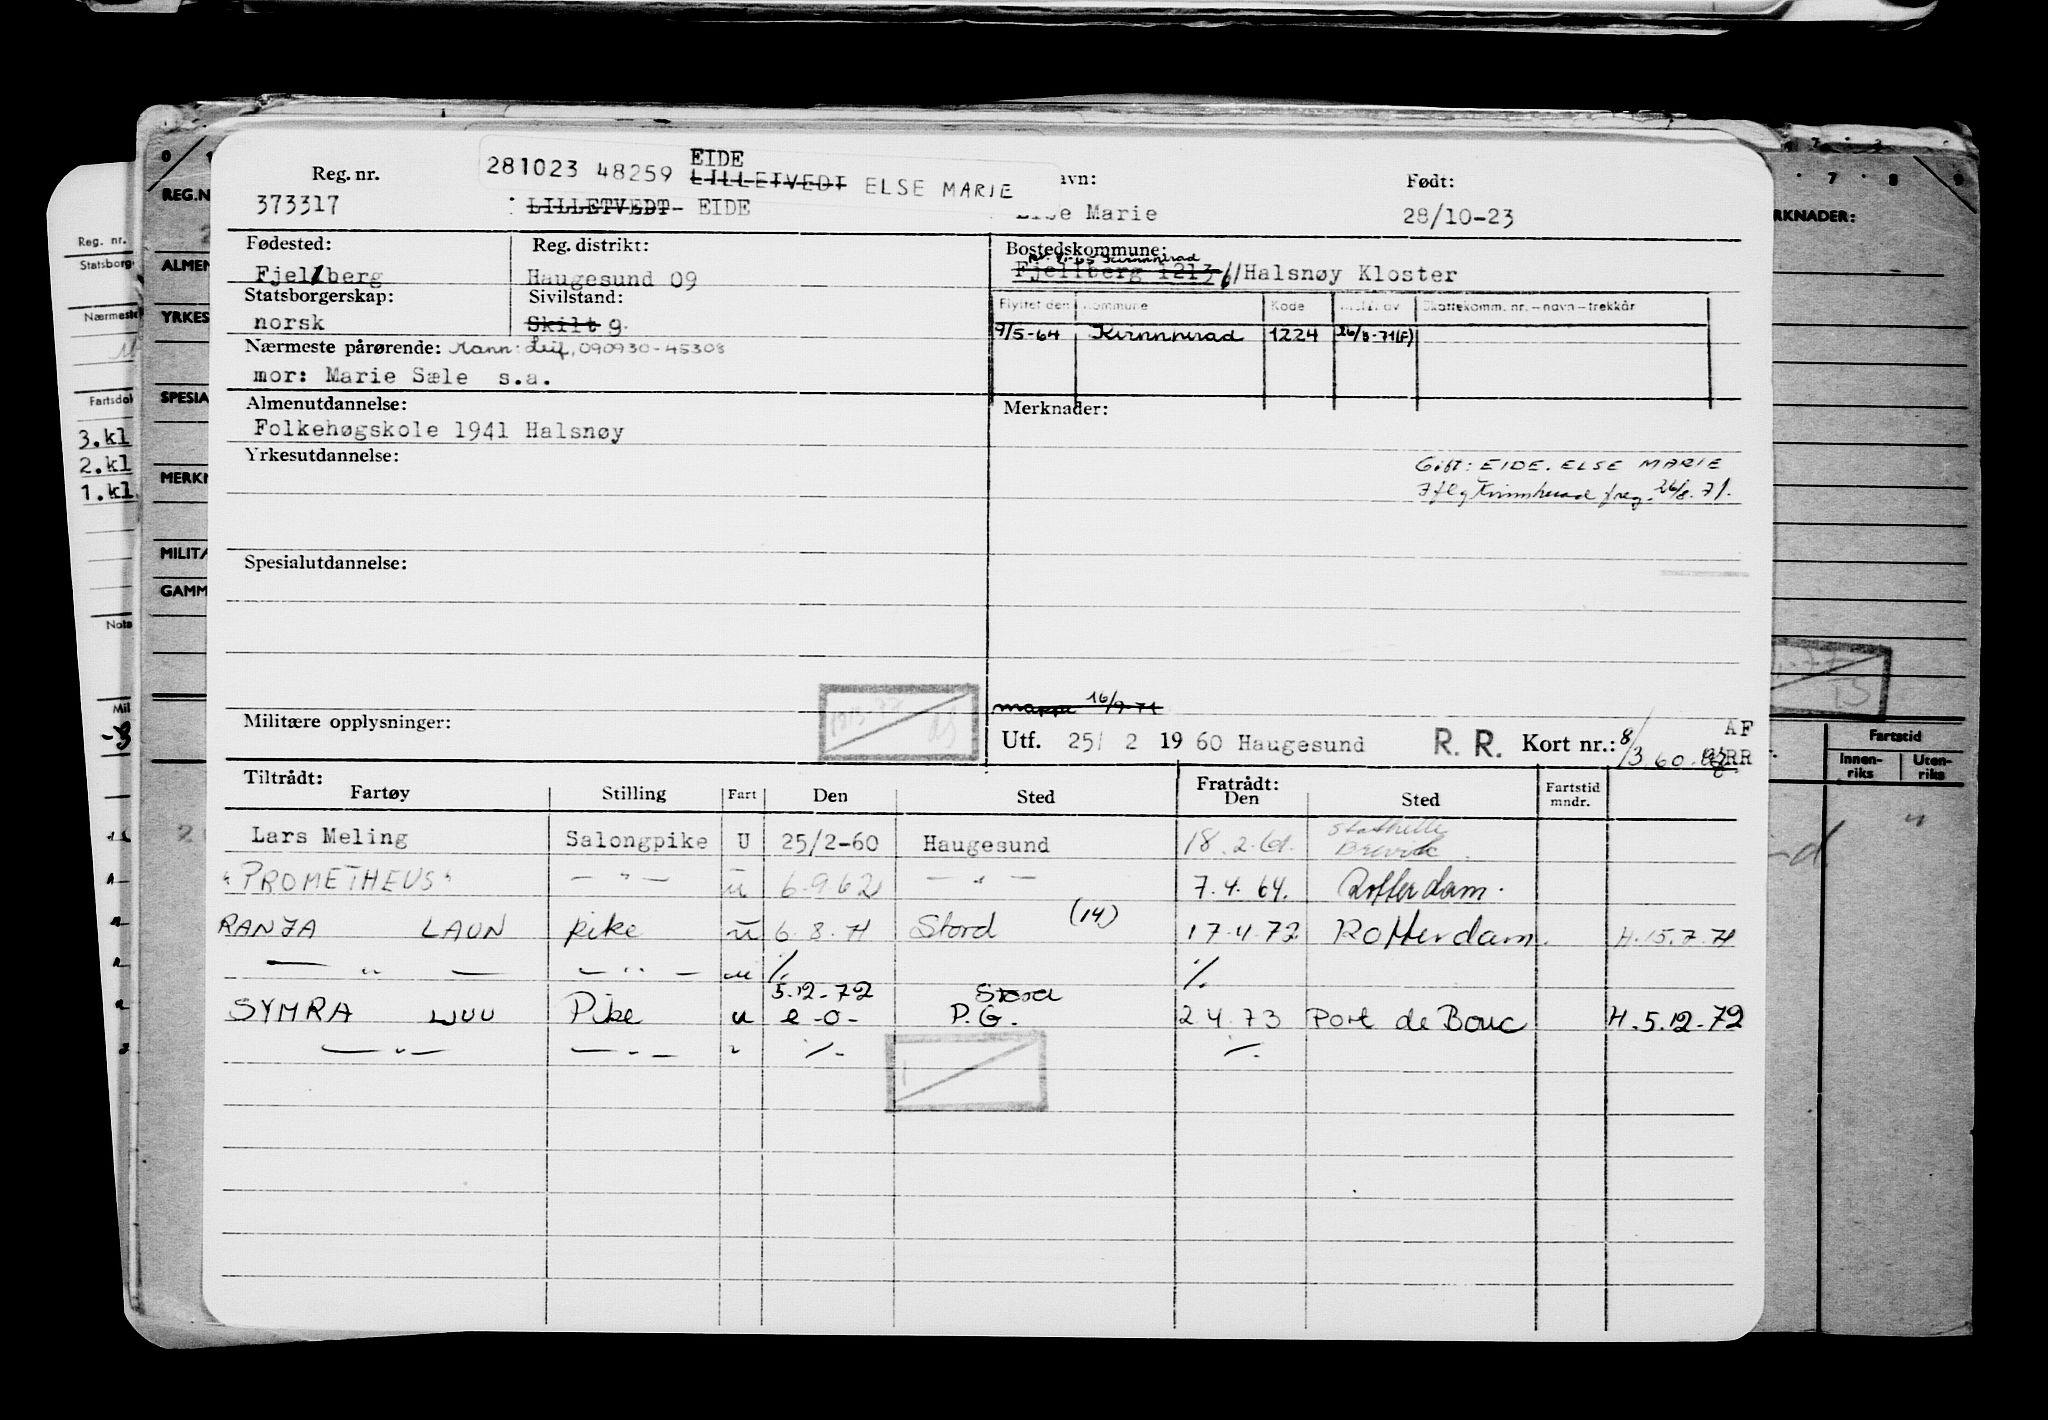 Reg. nr.
281023 48259 EIDE
LILLETVEDT ELSE MARIE
avn:
Født:
373317
LILLETVEDT- EIDE
Else Marie
28/10-23
Fødested:
Reg. distrikt:
Bostedskommune:
Fjellberg
Haugesund 09
Fjellberg 1213 // Halsnøy Kloster
Statsborgerskap:
Sivilstand:
Flyttet den Kommune Kode Meld. av Skattekomm. nr. – navn – trekkår
norsk
Skilt g.
9/5-64 Kvinnherad 1224 26/8-71(F)
Nærmeste pårørende: Mann: Leif, 090930-45308
mor: Marie Sæle s.a.
Almenutdannelse:
Merknader:
Folkehøgskole 1941 Halsnøy
Yrkesutdannelse:
Gift: EIDE. ELSE MARIE
Iflg Kvinnherad freg. 26/8. 71.
Spesialutdannelse:
Militære opplysninger:
mappe 16/7-71
Utf. 25/ 2 19 60 Haugesund R. R. Kort nr.: 8/3 60. AF
RR
Tiltrådt:
Fartøy Stilling Fart Den Sted Fratrådt:
Den Sted Fartstid
mndr.
Lars Meling Salongpike U 25/2-60 Haugesund 18.2.61. Stathelle
Brevik
"PROMETHEUS" — " — u 6.9.62 — " — 7.4.64. Rotterdam.
RANJA LAUN pike u 6.8.71 Stord (14) 17.4.72 Rotterdam. H.15.7.71
— " — — " — u %. %.
5.12-72 Stord
SYMRA LJUU Pike u e -o- P.G. 2 4.73 Port de Bouc H.5.12-72
— " — — " — " %. %.
Reg. nr.
Statsborg
Nærmeste
Fartsdok
3.kl
2.kl
1.kl
Nota
Mil
REG.N
ALMEN
YRKES
SPESIA
MERKN
MILITÆ
GAMM
RKNADER:
7 8 9
Fartstid
Innen-
riks
Uten-
riks